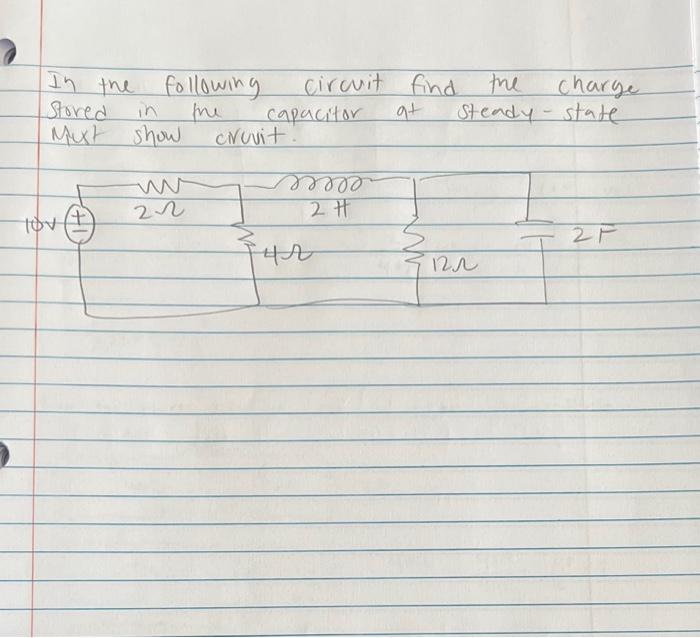 In the following circuit find the charge
stored in the capacitor at steady-state
Must show circuit.
10V 2Ω 2 H
4Ω 12Ω 2F